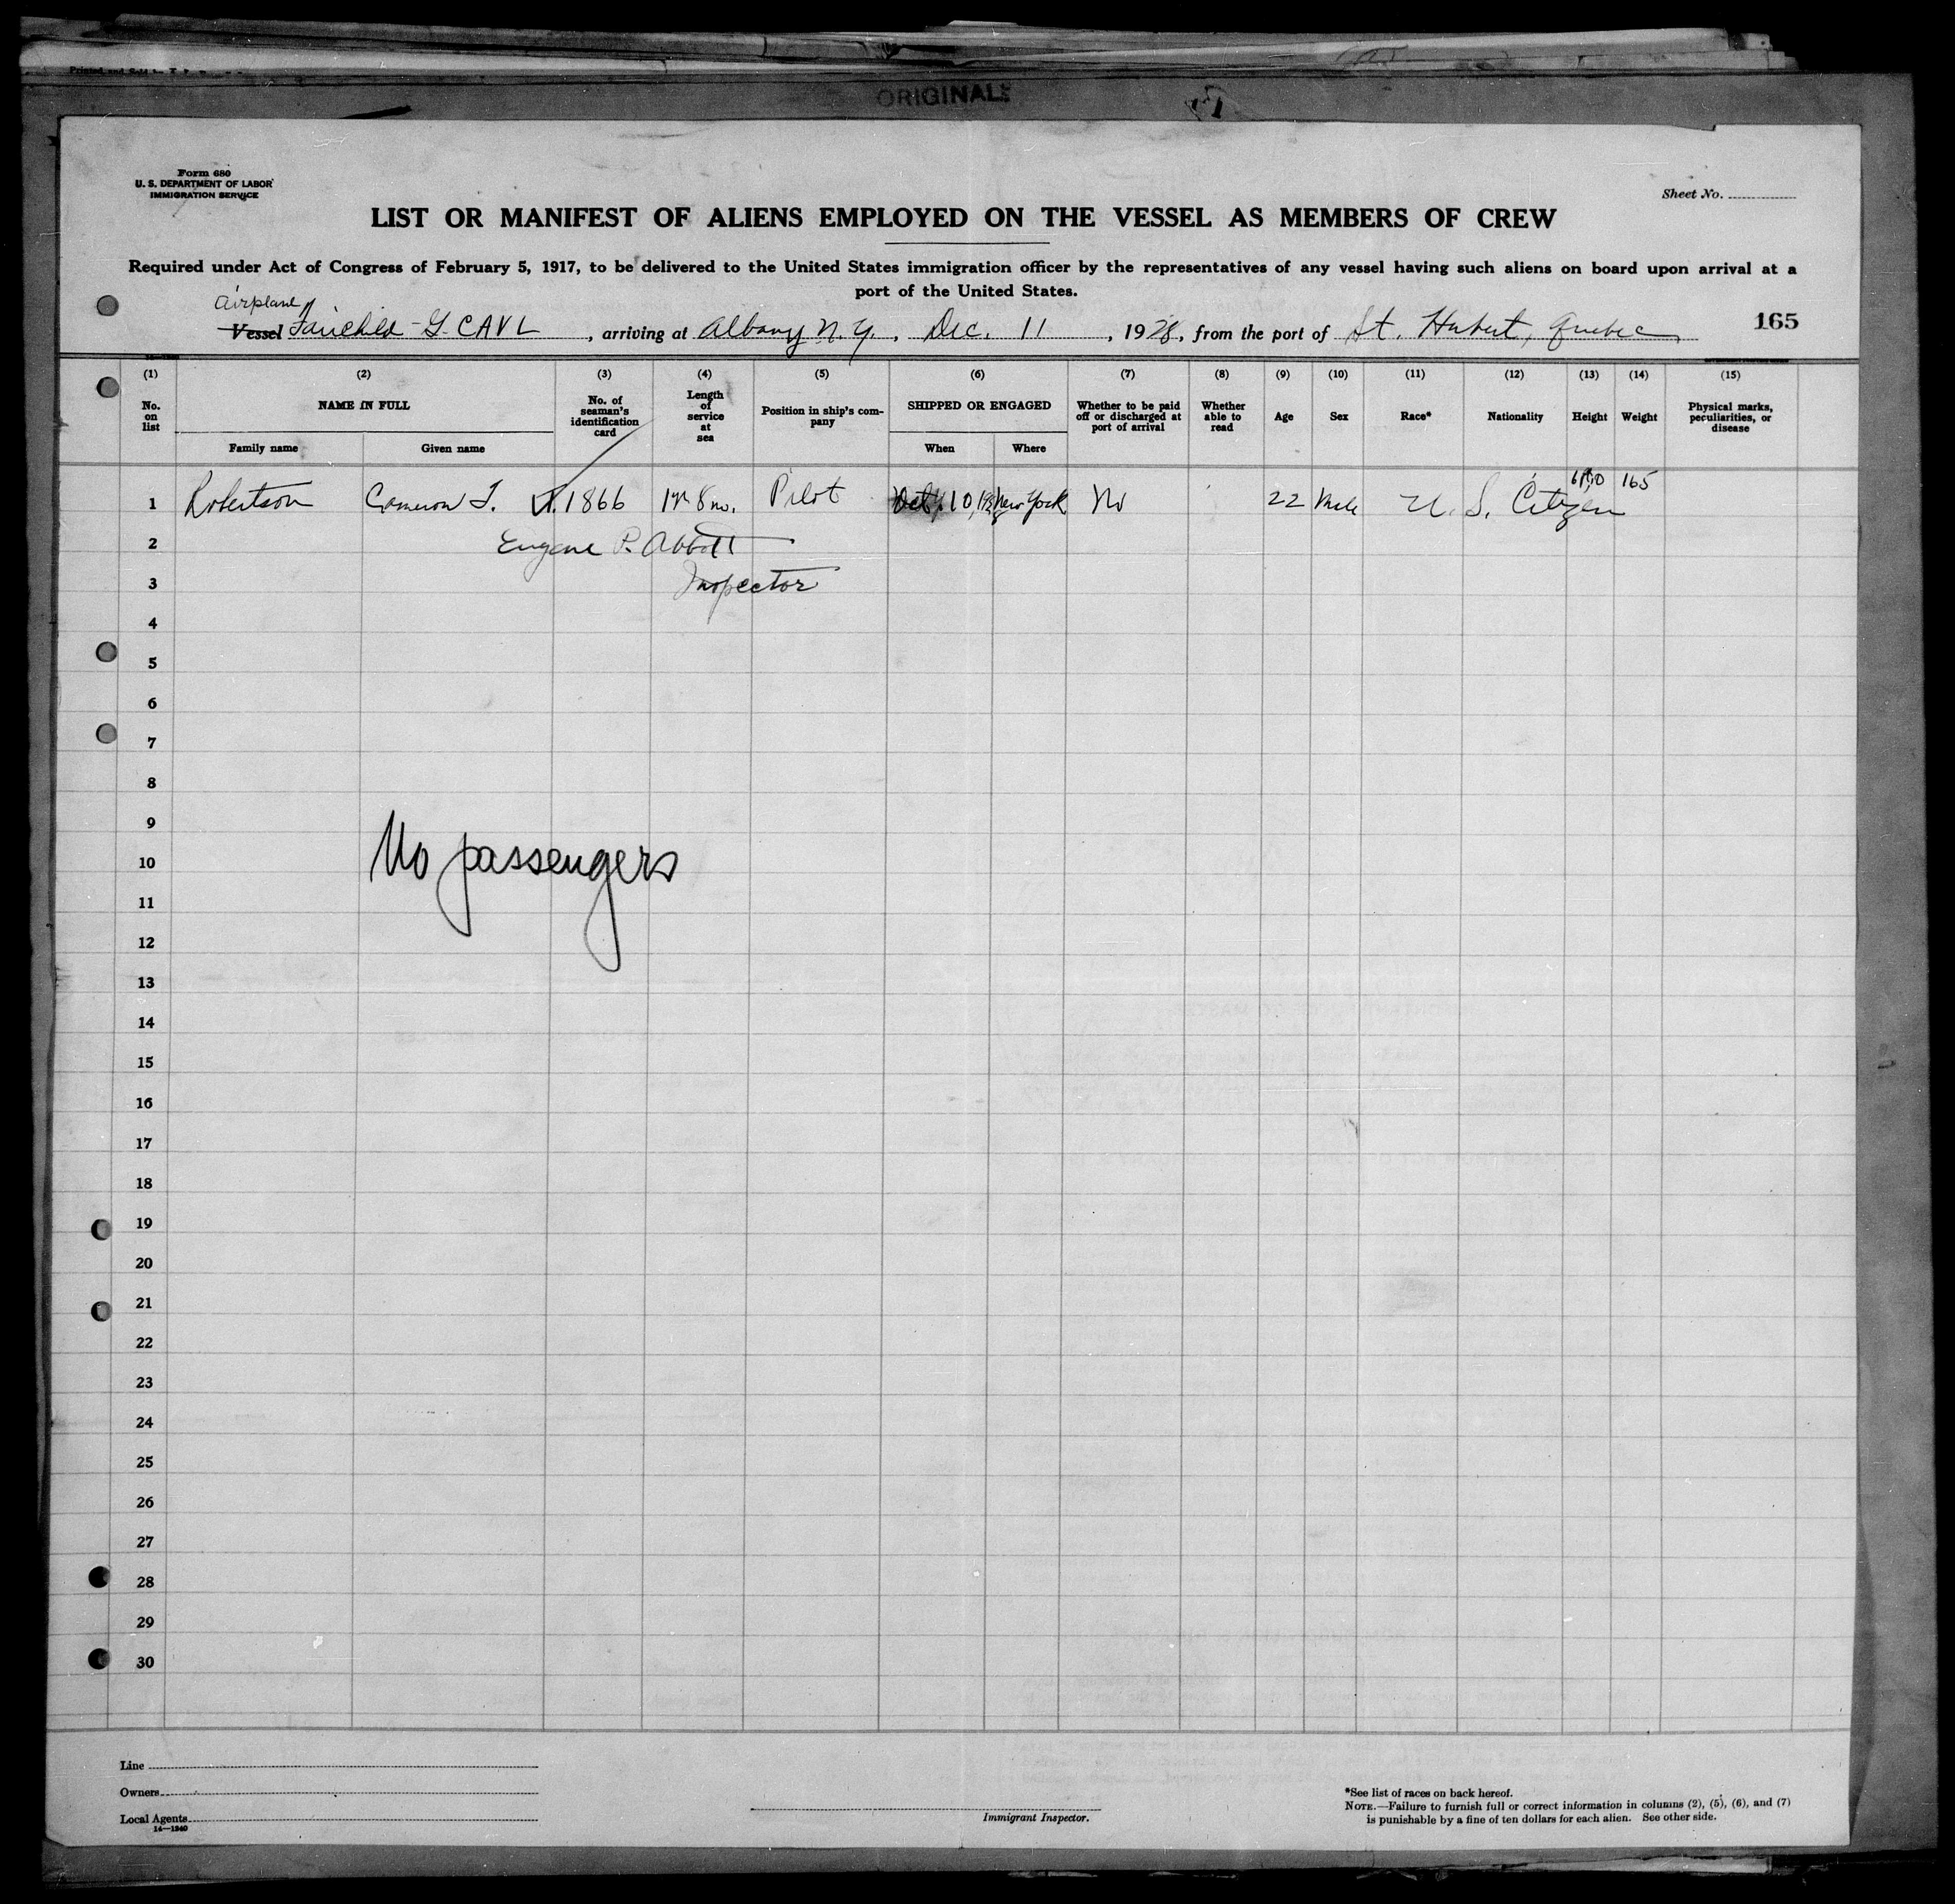 ORIGINAL
Form 680
U. S. DEPARTMENT OF LABOR
IMMIGRATION SERVICE
Sheet No.
LIST OR MANIFEST OF ALIENS EMPLOYED ON THE VESSEL AS MEMBERS OF CREW
Required under Act of Congress of February 5, 1917, to be delivered to the United States immigration officer by the representatives of any vessel having such aliens on board upon arrival at a
port of the United States.
Airplane
Vessel Fairchild G-CAVL, arriving at Albany N.Y., Dec. 11, 1928, from the port of St. Hubert, Quebec
165
(1) (2) (3) (4) (5) (6) (7) (8) (9) (10) (11) (12) (13) (14) (15)
No. on list
NAME IN FULL
Family name
Given name
No. of seaman's identification card
Length of service at sea
Position in ship's company
SHIPPED OR ENGAGED
When
Where
Whether to be paid off or discharged at port of arrival
Whether able to read
Age
Sex
Race*
Nationality
Height
Weight
Physical marks, peculiarities, or disease
1 Robertson Cameron T. 1866 1 yr 8 mo. Pilot Oct. 10, New York No 22 Male U. S. Citizen 165
2 Eugene P. Abbott
3 Inspector
4
5
6
7
8
9
No passengers
10
11
12
13
14
15
16
17
18
19
20
21
22
23
24
25
26
27
28
29
30
Line
Owners
Local Agents
14—1240
Immigrant Inspector.
*See list of races on back hereof.
NOTE.—Failure to furnish full or correct information in columns (2), (5), (6), and (7)
is punishable by a fine of ten dollars for each alien. See other side.